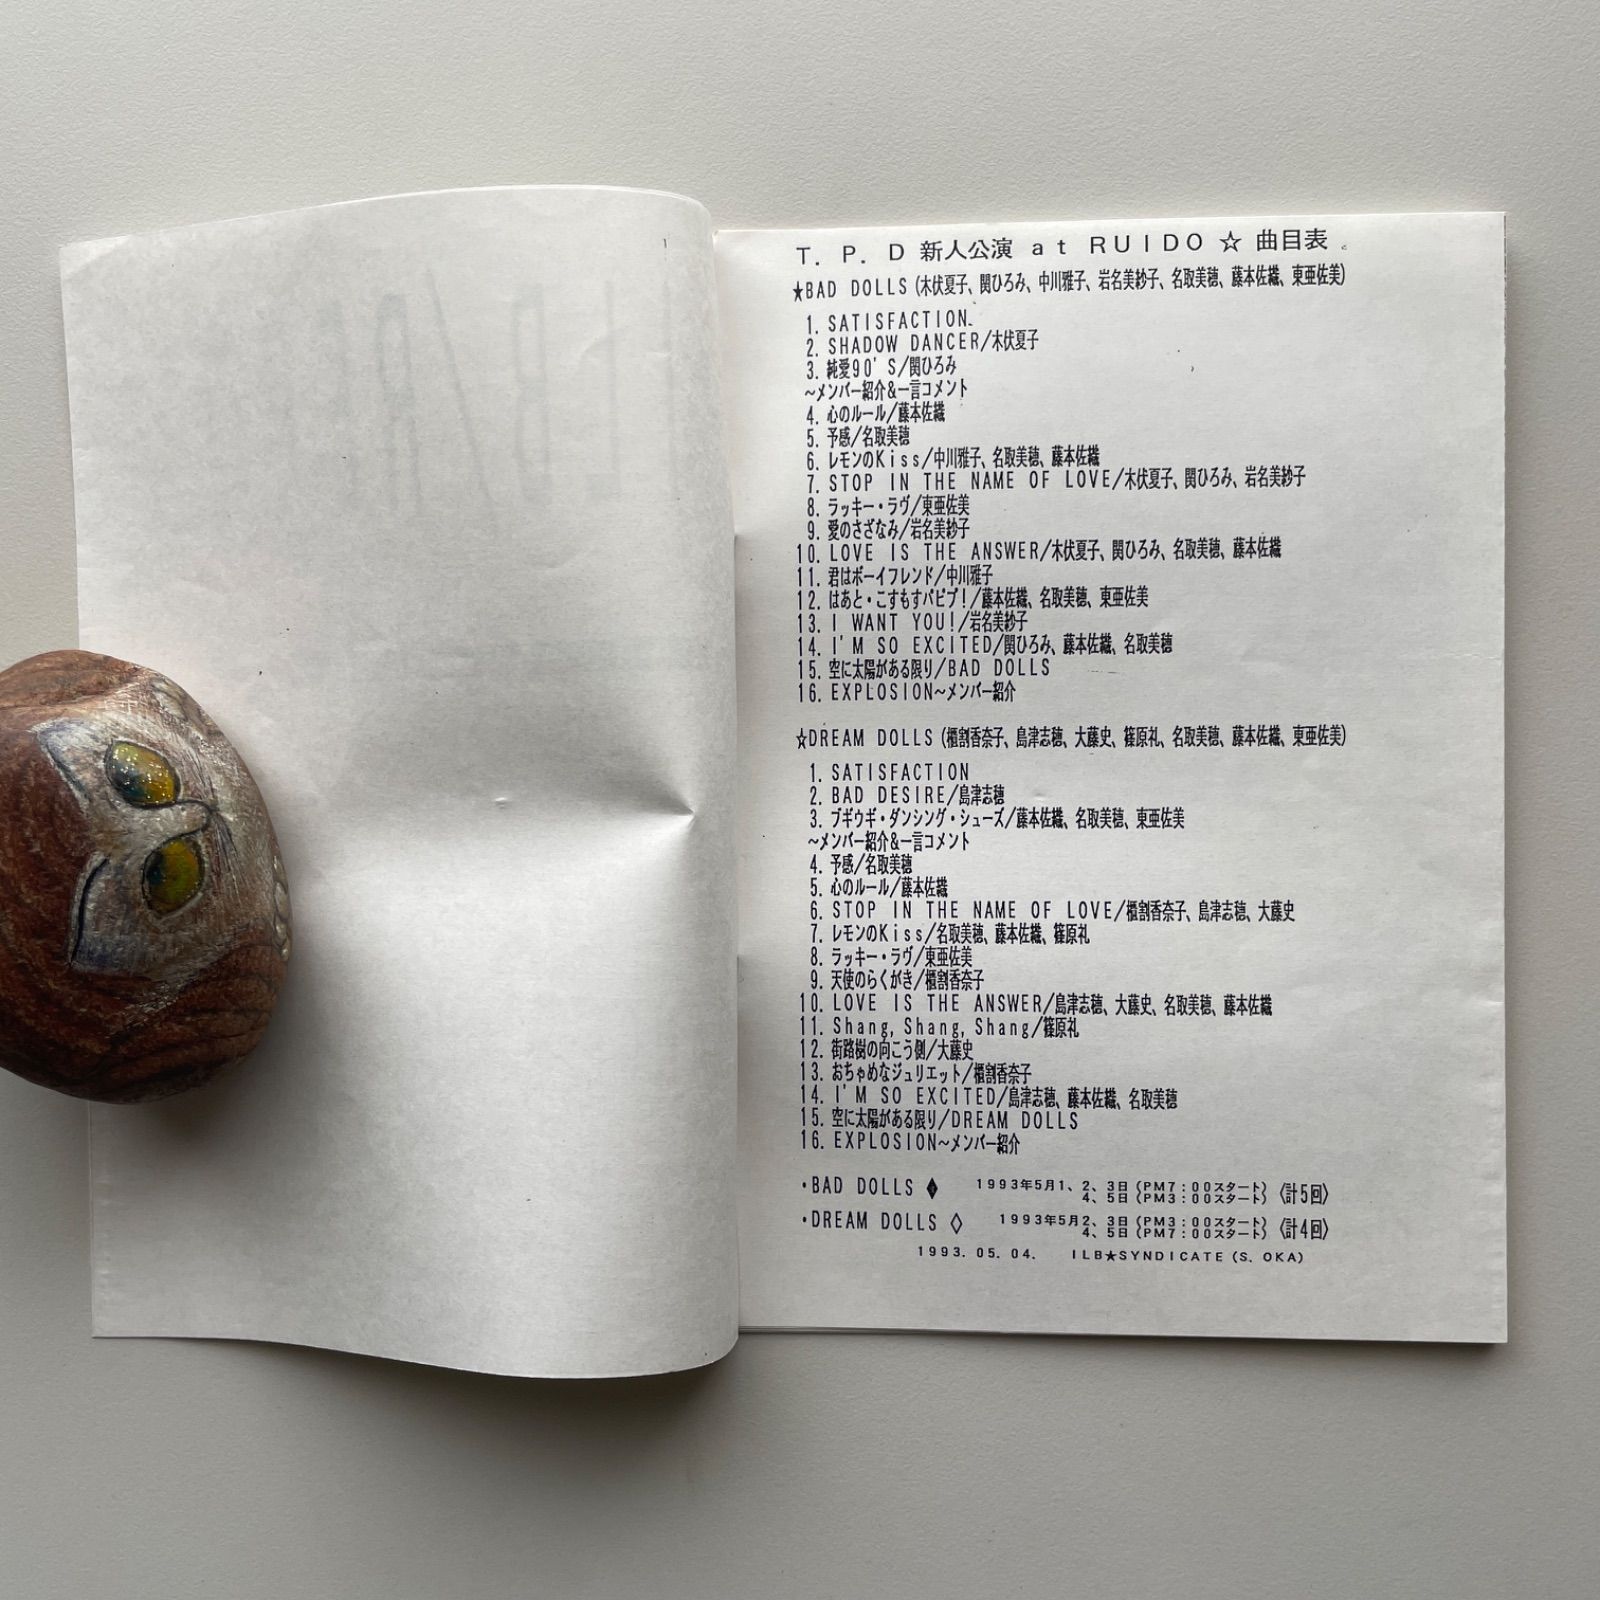 T. P. D 新人公演 at RUIDO ☆ 曲目表
★BAD DOLLS (木伏夏子、関ひろみ、中川雅子、岩名美紗子、名取美穂、藤本佐織、東亜佐美)
1. SATISFACTION
2. SHADOW DANCER/木伏夏子
3. 純愛90'S/関ひろみ
~メンバー紹介&一言コメント
4. 心のルール/藤本佐織
5. 予感/名取美穂
6. レモンのKiss/中川雅子、名取美穂、藤本佐織
7. STOP IN THE NAME OF LOVE/木伏夏子、関ひろみ、岩名美紗子
8. ラッキー・ラヴ/東亜佐美
9. 愛のさざなみ/岩名美紗子
10. LOVE IS THE ANSWER/木伏夏子、関ひろみ、名取美穂、藤本佐織
11. 君はボーイフレンド/中川雅子
12. はあと・こすもすパピプ!/藤本佐織、名取美穂、東亜佐美
13. I WANT YOU!/岩名美紗子
14. I'M SO EXCITED/関ひろみ、藤本佐織、名取美穂
15. 空に太陽がある限り/BAD DOLLS
16. EXPLOSION~メンバー紹介
☆DREAM DOLLS (櫃割香奈子、島津志穂、大藤史、篠原礼、名取美穂、藤本佐織、東亜佐美)
1. SATISFACTION
2. BAD DESIRE/島津志穂
3. ブギウギ・ダンシング・シューズ/藤本佐織、名取美穂、東亜佐美
~メンバー紹介&一言コメント
4. 予感/名取美穂
5. 心のルール/藤本佐織
6. STOP IN THE NAME OF LOVE/櫃割香奈子、島津志穂、大藤史
7. レモンのKiss/名取美穂、藤本佐織、篠原礼
8. ラッキー・ラヴ/東亜佐美
9. 天使のらくがき/櫃割香奈子
10. LOVE IS THE ANSWER/島津志穂、大藤史、名取美穂、藤本佐織
11. Shang, Shang, Shang/篠原礼
12. 街路樹の向こう側/大藤史
13. おちゃめなジュリエット/櫃割香奈子
14. I'M SO EXCITED/島津志穂、藤本佐織、名取美穂
15. 空に太陽がある限り/DREAM DOLLS
16. EXPLOSION~メンバー紹介
・BAD DOLLS ♦ 1993年5月1、2、3日(PM7:00スタート)
4、5日(PM3:00スタート)〈計5回〉
・DREAM DOLLS ◇ 1993年5月2、3日(PM3:00スタート)
4、5日(PM7:00スタート)〈計4回〉
1993. 05. 04. ILB★SYNDICATE (S. OKA)